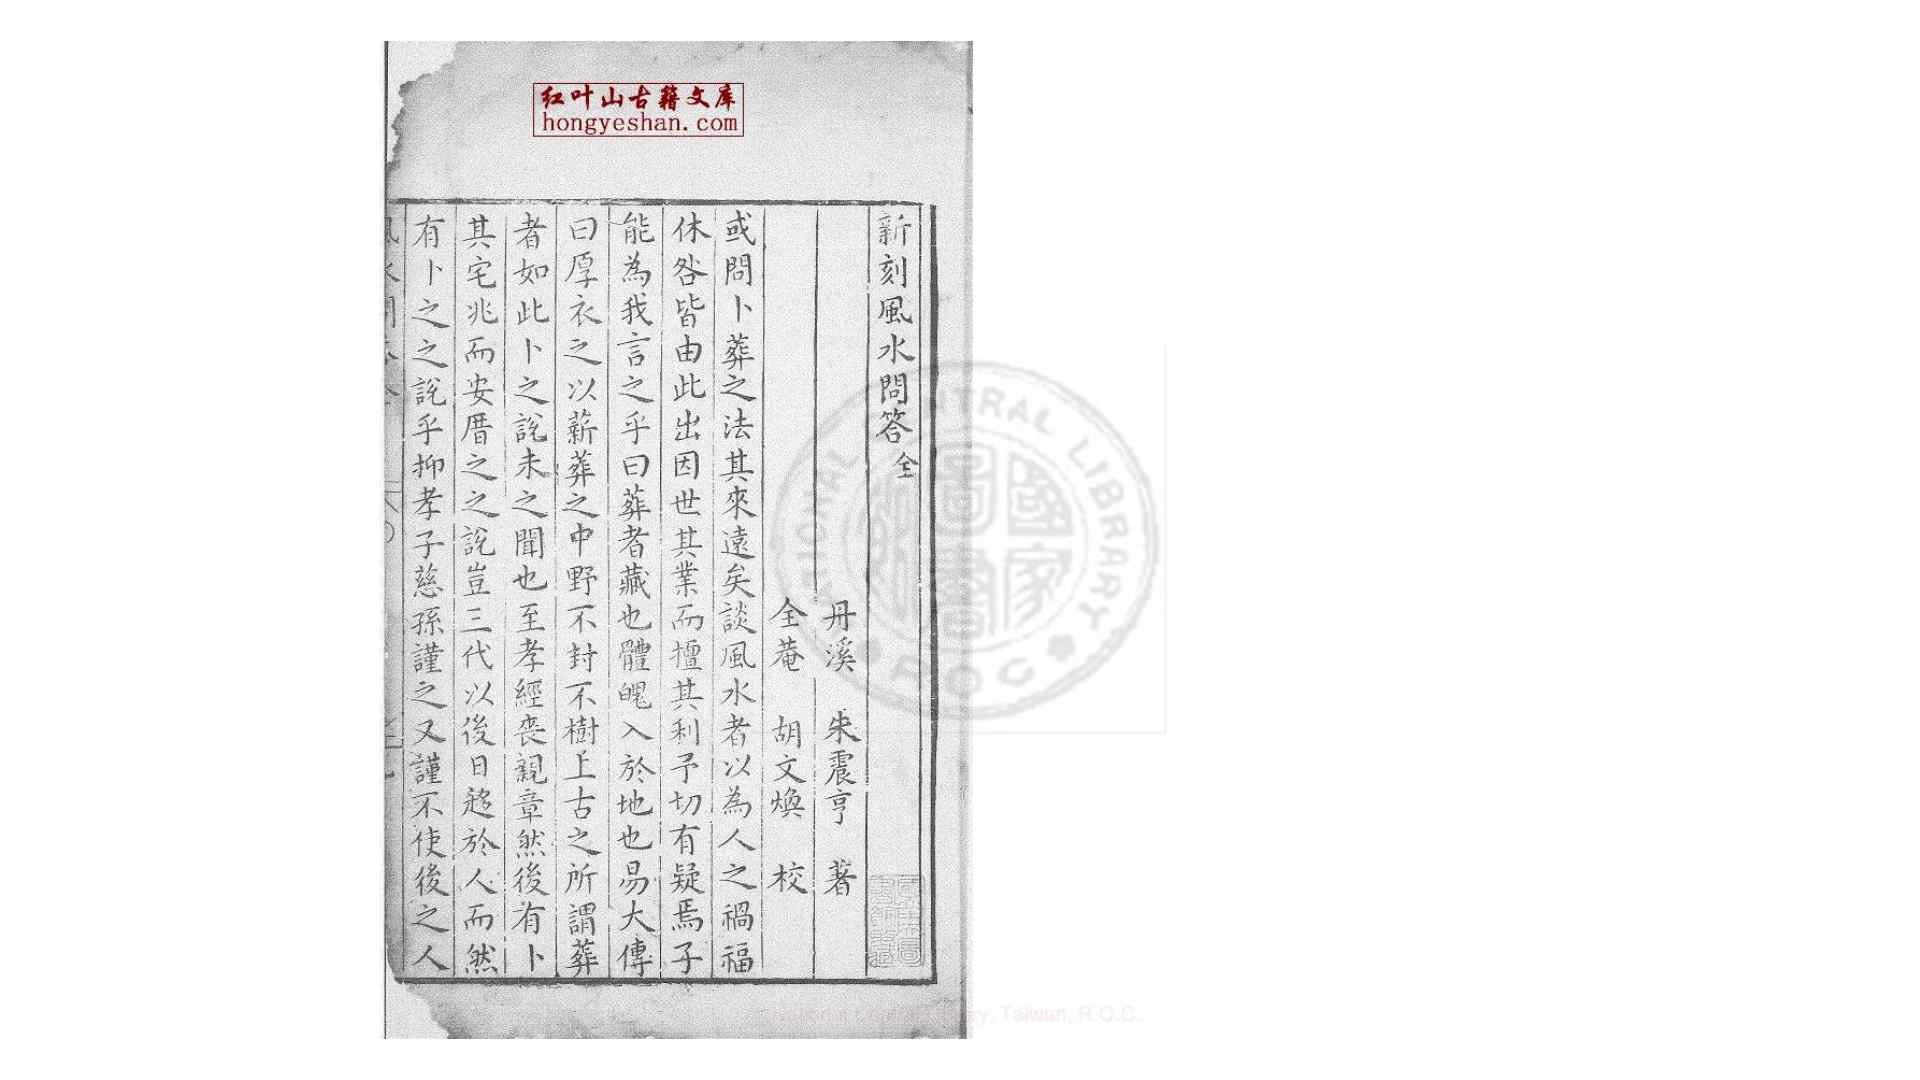 红叶山古籍文库
hongyeshan.com
新刻風水問答全
丹溪 朱震亨 著
全菴 胡文煥 校
或問卜葬之法其來遠矣談風水者以為人之禍福
休咎皆由此出因世其業而擅其利予切有疑焉子
能為我言之乎曰葬者藏也體魄入於地也易大傳
曰厚衣之以薪葬之中野不封不樹上古之所謂葬
者如此卜之說未之聞也至孝經喪親章然後有卜
其宅兆而安厝之之說豈三代以後日趨於人而然
有卜之之說乎抑孝子慈孫謹之又謹不使後之人
NATIONAL CENTRAL LIBRARY
R.O.C.
國家圖書館
National Central Library, Taiwan, R.O.C.